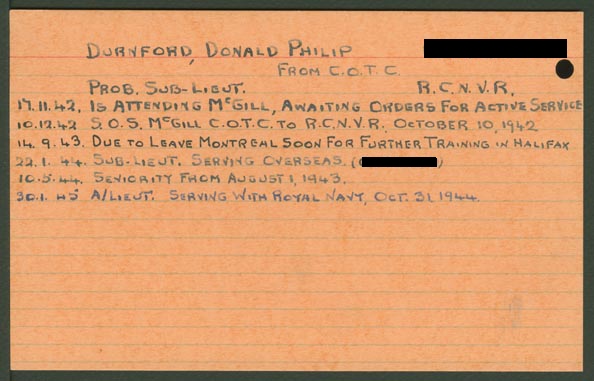 DURNFORD, DONALD PHILIP
FROM C.O.T.C.
PROB. SUB-LIEUT. R.C.N.V.R.
17.11.42. IS ATTENDING MCGILL, AWAITING ORDERS FOR ACTIVE SERVICE
10.12.42 S.O.S. MCGILL C.O.T.C. TO R.C.N.V.R. OCTOBER 10, 1942
14.9.43. DUE TO LEAVE MONTREAL SOON FOR FURTHER TRAINING IN HALIFAX
22.1.44. SUB-LIEUT. SERVING OVERSEAS. ( )
10.5.44. SENIORITY FROM AUGUST 1, 1943.
30.1.45 A/LIEUT. SERVING WITH ROYAL NAVY, OCT. 31, 1944.